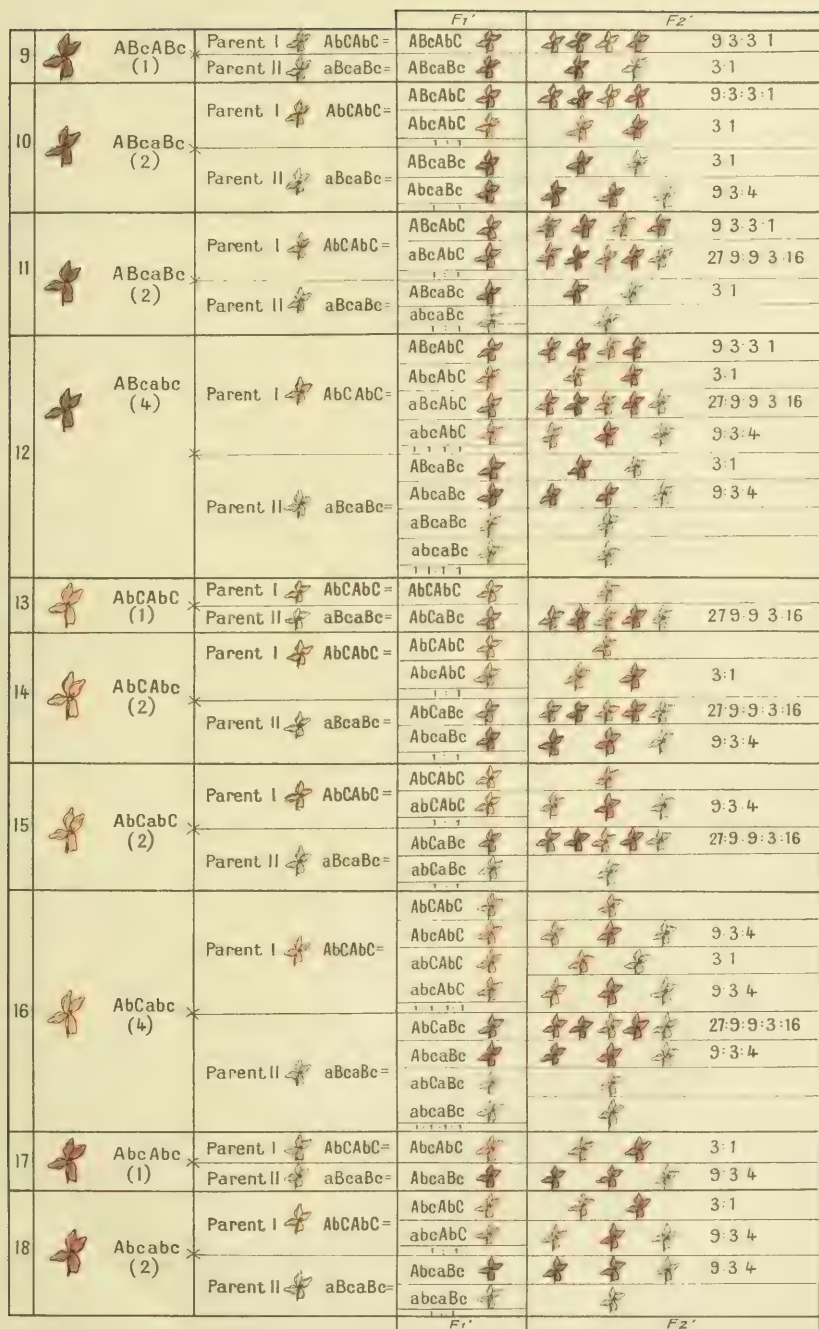 F1' F2'
9 ABcABc (1) Parent I AbCAbC= ABcAbC 9 3·3 1
Parent II aBcaBc= ABcaBc 3·1
10 ABcaBc (2) Parent I AbCAbC= ABcAbC 9:3:3:1
AbcAbC 3 1
1 : 1
Parent II aBcaBc= ABcaBc 3 1
AbcaBc 9 3:4
11 ABcaBc (2) Parent I AbCAbC= ABcAbC 9 3·3·1
aBcAbC 27 9:9 3·16
1 : 1
Parent II aBcaBc= ABcaBc 3 1
abcaBc
1 : 1
12 ABcabc (4) Parent I AbCAbC= ABcAbC 9 3·3 1
AbcAbC 3·1
aBcAbC 27:9 9 3 16
abcAbC 9:3:4
1 1 1 1
Parent II aBcaBc= ABcaBc 3:1
AbcaBc 9:3:4
aBcaBc
abcaBc
1 1:1 1
13 AbCAbC (1) Parent I AbCAbC= AbCAbC
Parent II aBcaBc= AbCaBc 27 9·9 3·16
14 AbCAbc (2) Parent I AbCAbC= AbCAbC
AbcAbC 3:1
1 : 1
Parent II aBcaBc= AbCaBc 27:9:9:3:16
AbcaBc 9:3:4
15 AbCabC (2) Parent I AbCAbC= AbCAbC
abCAbC 9:3·4
1 : 1
Parent II aBcaBc= AbCaBc 27:9·9:3:16
abCaBc
1 : 1
16 AbCabc (4) Parent I AbCAbC= AbCAbC
AbcAbC 9·3·4
abCAbC 3 1
abcAbC 9·3 4
1 1 1 1
Parent II aBcaBc= AbCaBc 27:9:9:3:16
AbcaBc 9:3:4
abCaBc
abcaBc
1·1·1·1
17 AbcAbc (1) Parent I AbCAbC= AbcAbC 3·1
Parent II aBcaBc= AbcaBc 9·3 4
18 Abcabc (2) Parent I AbCAbC= AbcAbC 3:1
abcAbC 9·3 4
1 : 1
Parent II aBcaBc= AbcaBc 9 3 4
abcaBc
1 : 1
F1' F2'